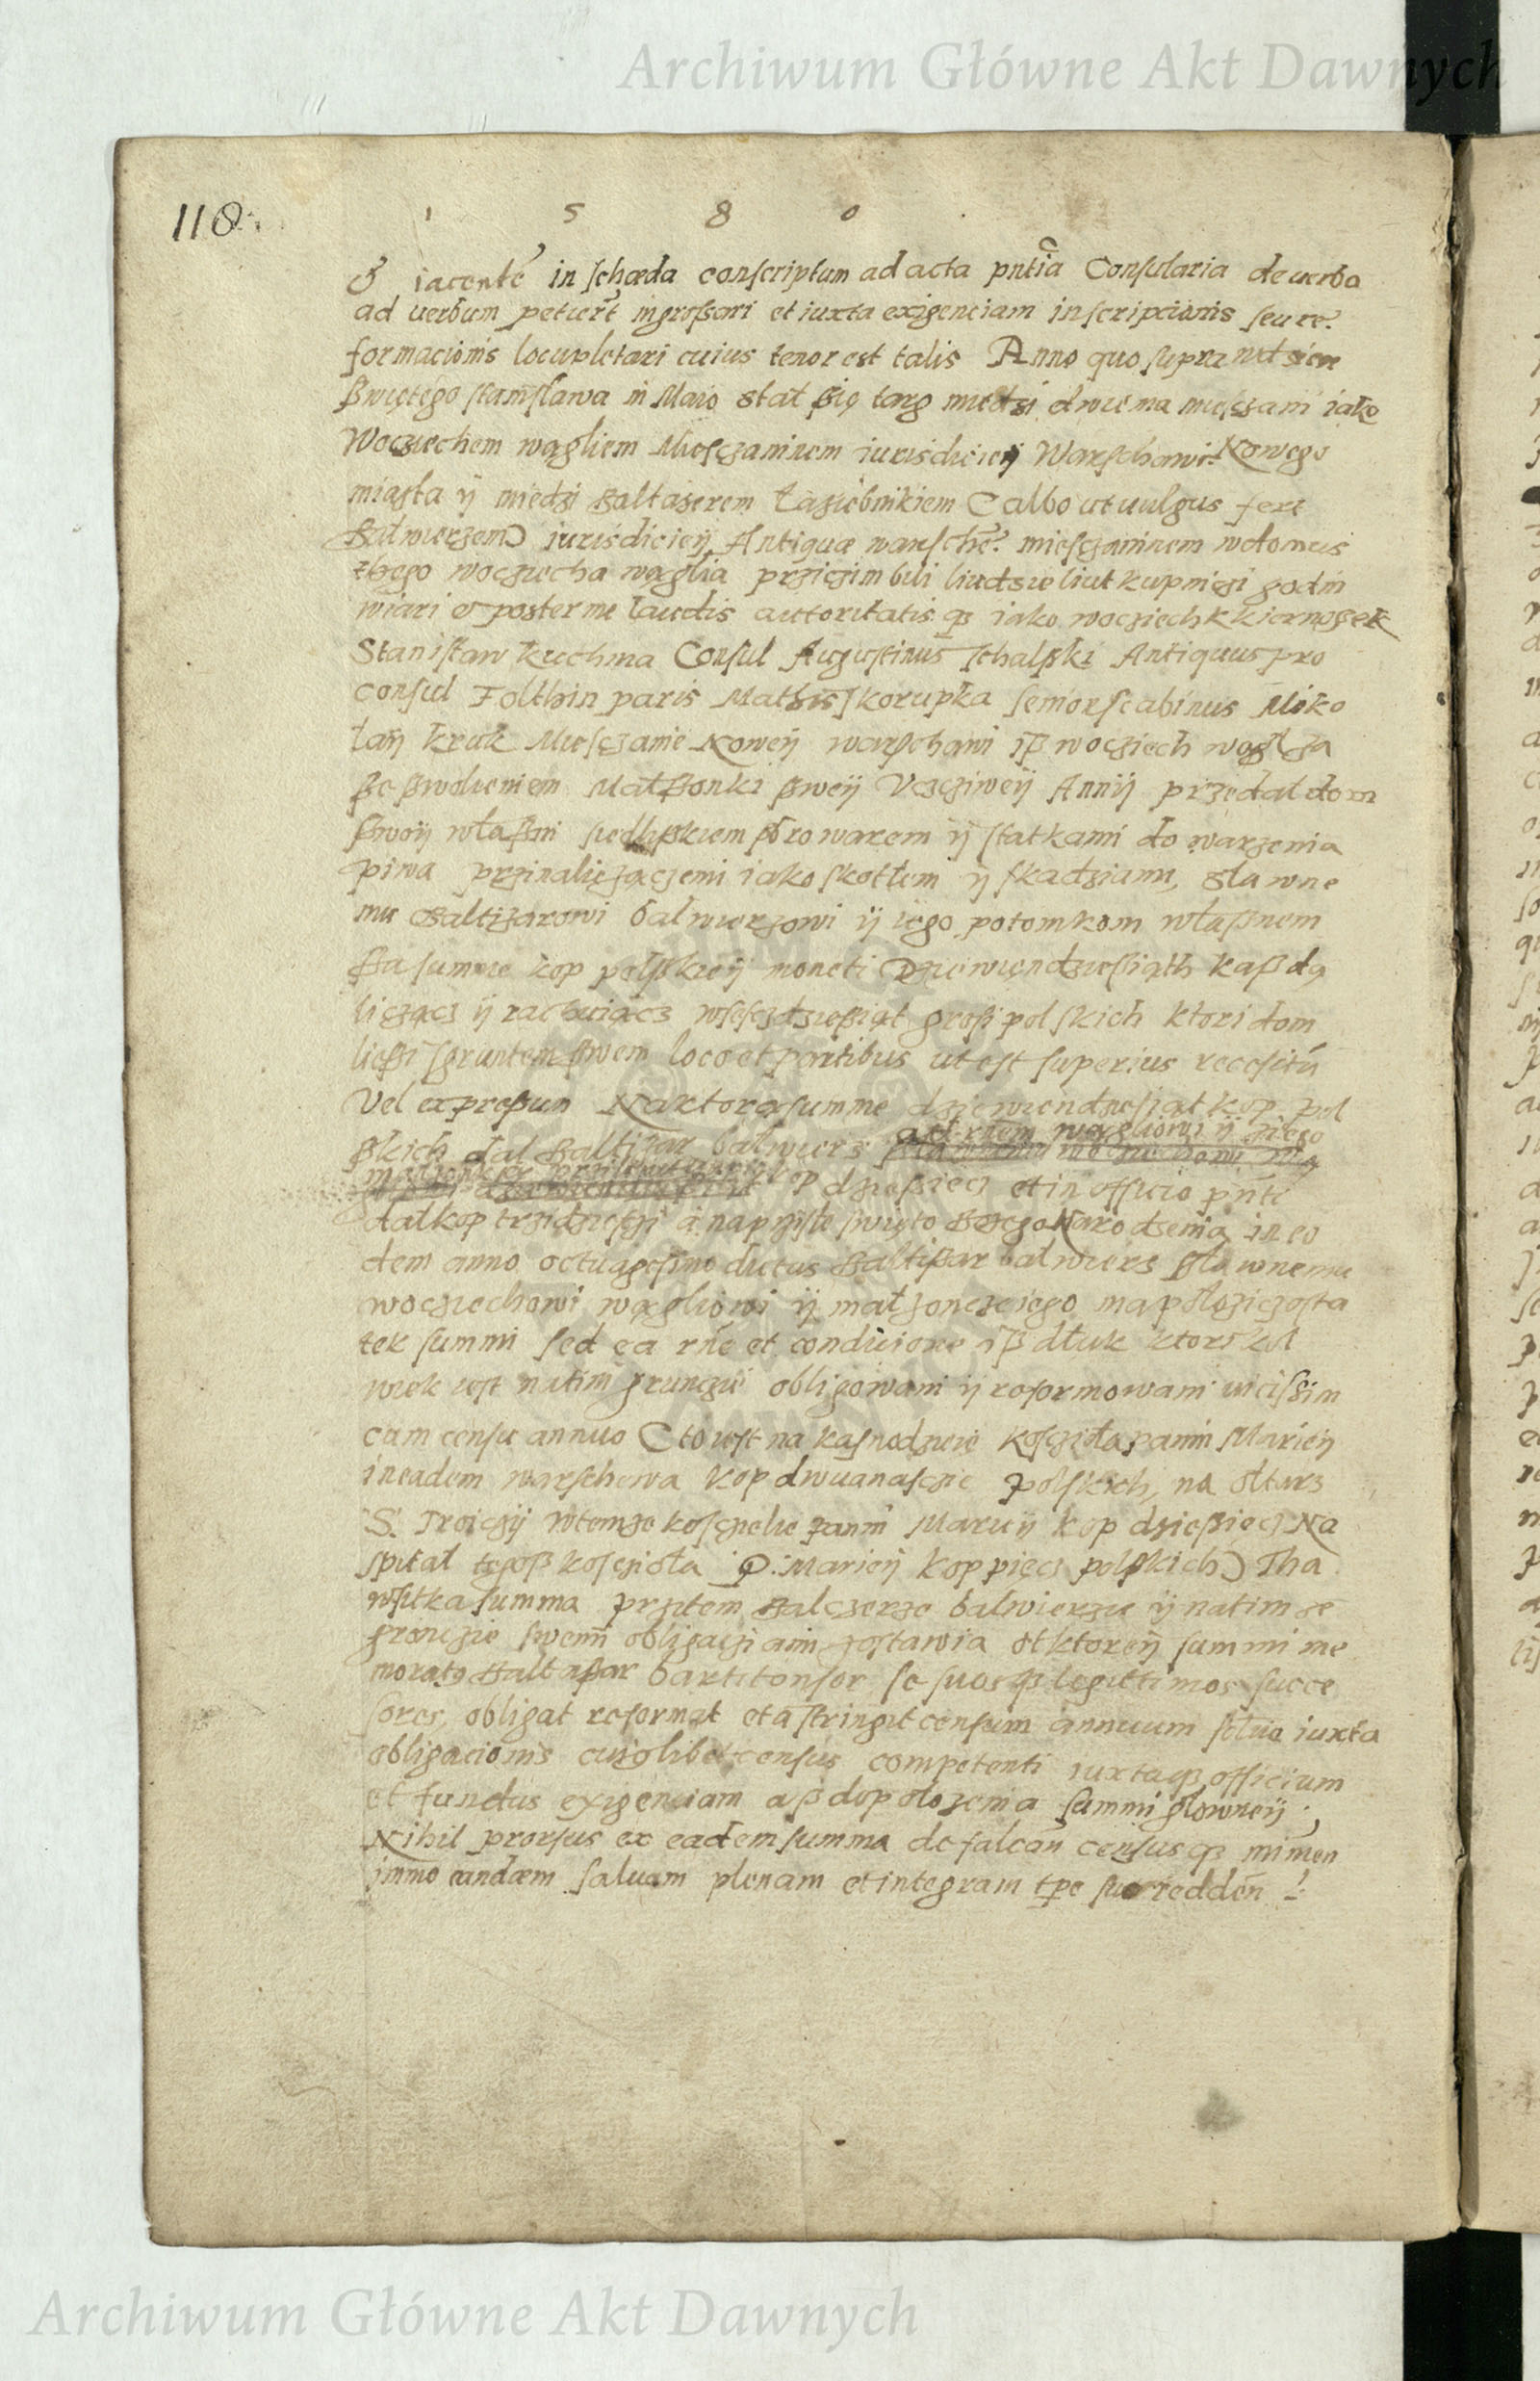 Archiwum Główne Akt Dawnych
118.
1 5 8 0
& iacente in schæda conscriptum ad acta pntia Consularia de uerbo
ad uerbum petiert ingroßari et iuxta exigenciam inscripcionis seu re.
formacionis locupletari cuius tenor est talis Anno quo supra
ßwiętego stanislawa in Maio stał ßię targ miedzi dwiema miesczani iako
Wocziechem wągliem Miesczaninem iurisdicieÿ Warschawi. Nowego
miasta ÿ miedzi Baltazerem Łaziebnikiem (albo ut uulgus fert
Balwierzem) iurisdicieÿ Antiquæ warsche. miesczaninem wdomus
thego wocziecha wąglia prziczim bili liudzie liutkupniczi godni
wiari & posterme laudis autoritatisqz iako wocziech
Stanisław kuchma Consul Augustinus schalski Antiquus pro
consul Folthin paris Mathis skorupka senior scabinus Miko
łaÿ kruk Miesczanie Noweÿ warschawi iß wocziech
ße ßwoleniem Małßonki ßweÿ Vczcziweÿ Annÿ przedal dom
swoÿ właßni siedliskiem ßbrowarem ÿ statkami do warzenia
piwa prinaliężączemi iako skotłem ÿ skadziami, slawne
mu Baltizarowi balwierzowi ÿ iego potomkom właßnem
ßa summe kop polskieÿ moneti Dziewięndzießiąth kaßdą
licząncz ÿ rachuiącz wsesczdzießiąt großi polskich ktori dom
lieszi sgruntem ßwem loco et partibus ut est superius recesitũ
Vel expreßum Naktorą summe dziewiendzesiąt kop pol
ßkich dal Baltizar balwiers ad rñem wągliowi ÿ ziego
małżonką kop dzießiecz et in officio pñti
dał kop trzidziesczi a naprziste święto Bożego Narodzenia in eo
dem anno octuagesimo dictus Baltißar balwiers ßlawnemu
wocziechowi wągliowi ÿ małzonce iego ma położicz osta
tek summi sed ea rñe et condicione iß dłuk ktorikol
wiek iest natim grunczie obligowani ÿ reformowani uicißim
cum censu annuo (to iest na kasnodzieię kościoła panni Marieÿ
in eadem warschewa kop dwuanasczie polskich, na ołtarz
S. Troiczÿ wtemże koscziele panni Marieÿ kop dzießięcz Na
spital tegoß kosczioła P. Marieÿ kop pięcz polskich) Tha
wsitka summa przitem Balczerze balwierzu ÿ natim ze
grunczie swemi obligacziami zostawia otktoreÿ summi me
morat9 Baltaßar barbitonsor se suosqz legittimos succe
sores, obligat reformat et astringit censum annuum iuxta
obligacionis cuiuslibet census competenti iuxtaqz officium
et fundus exigenciam aß dopołozenia summi głowneÿ;
Nihil prorsus ex eadem summa defalcan censusqz minuen
immo eandæm saluam plenam et integram tpe suo redden
Archiwum Główne Akt Dawnych